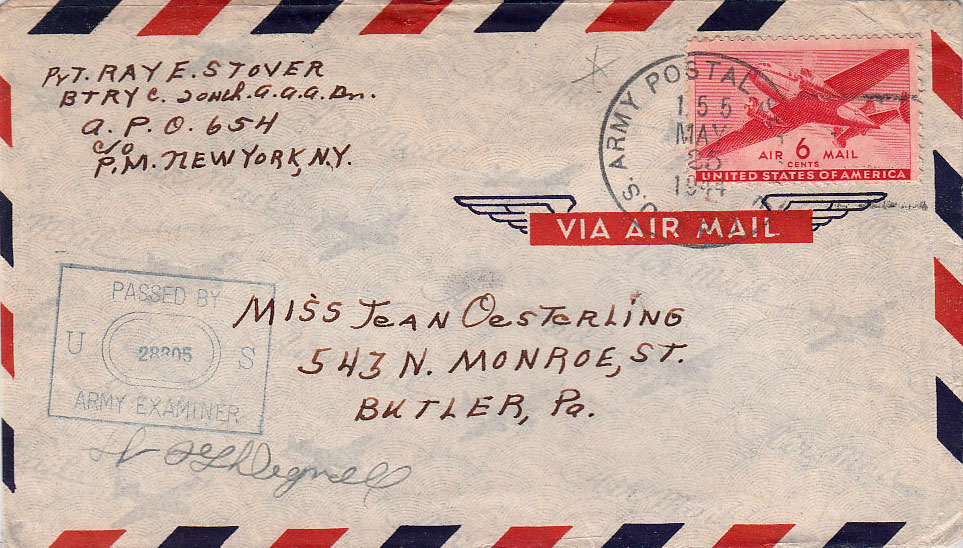 Pvt. RAY E. STOVER
BTRY C. a.a.a. Bn.
a. P. O. 654
c/o
P.M. NEW YORK, N.Y.
U.S. ARMY POSTAL
155
MAY
1944
AIR 6 MAIL
CENTS
UNITED STATES OF AMERICA
VIA AIR MAIL
PASSED BY
U S
ARMY EXAMINER
MISS JEAN OESTERLING
543 N. MONROE, ST.
BUTLER, Pa.